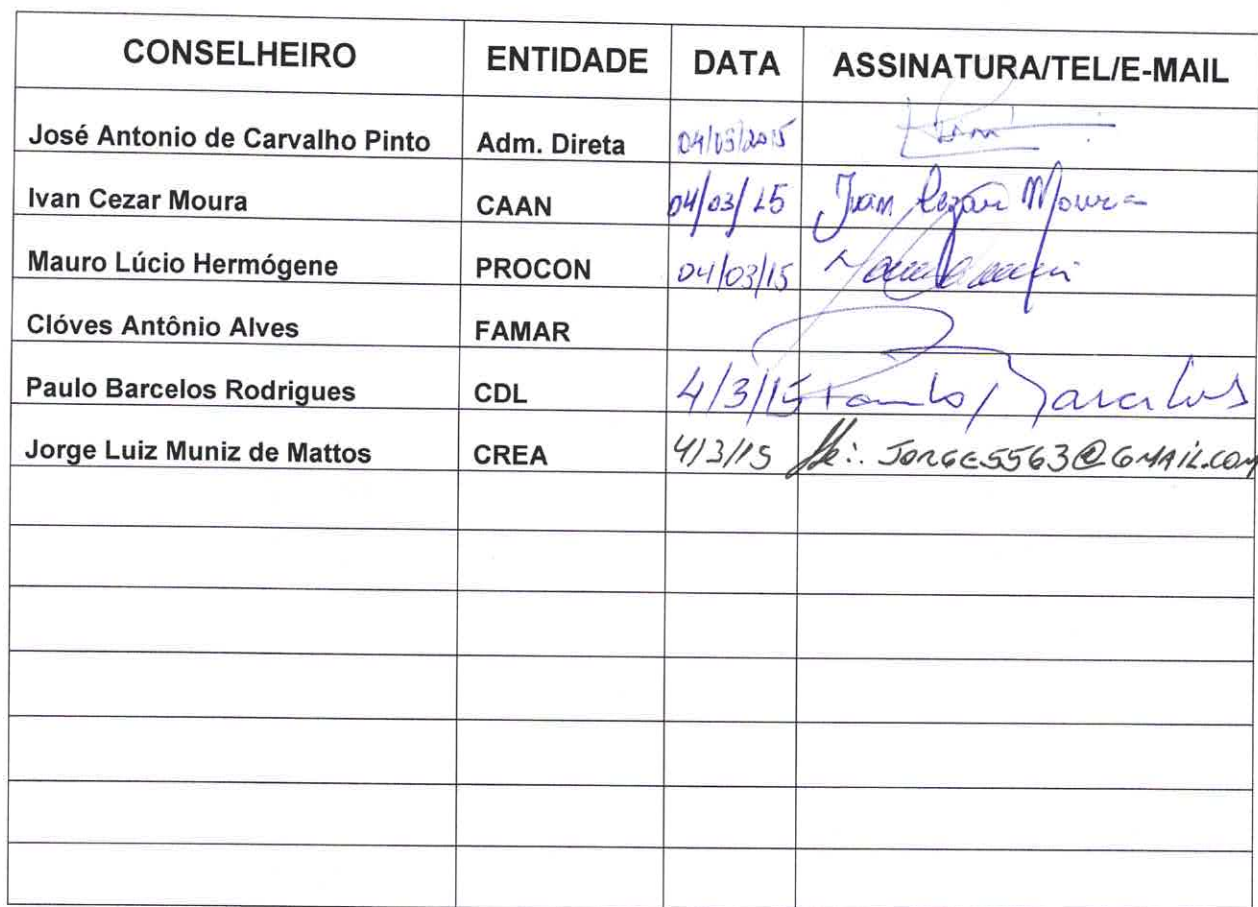 CONSELHEIRO ENTIDADE DATA ASSINATURA/TEL/E-MAIL
José Antonio de Carvalho Pinto Adm. Direta 04/03/2015
Ivan Cezar Moura CAAN 04/03/15 Ivan Cezar Moura
Mauro Lúcio Hermógene PROCON 04/03/15
Clóves Antônio Alves FAMAR
Paulo Barcelos Rodrigues CDL 4/3/15 Paulo Barcelos
Jorge Luiz Muniz de Mattos CREA 4/3/15 JORGE5563@GMAIL.COM